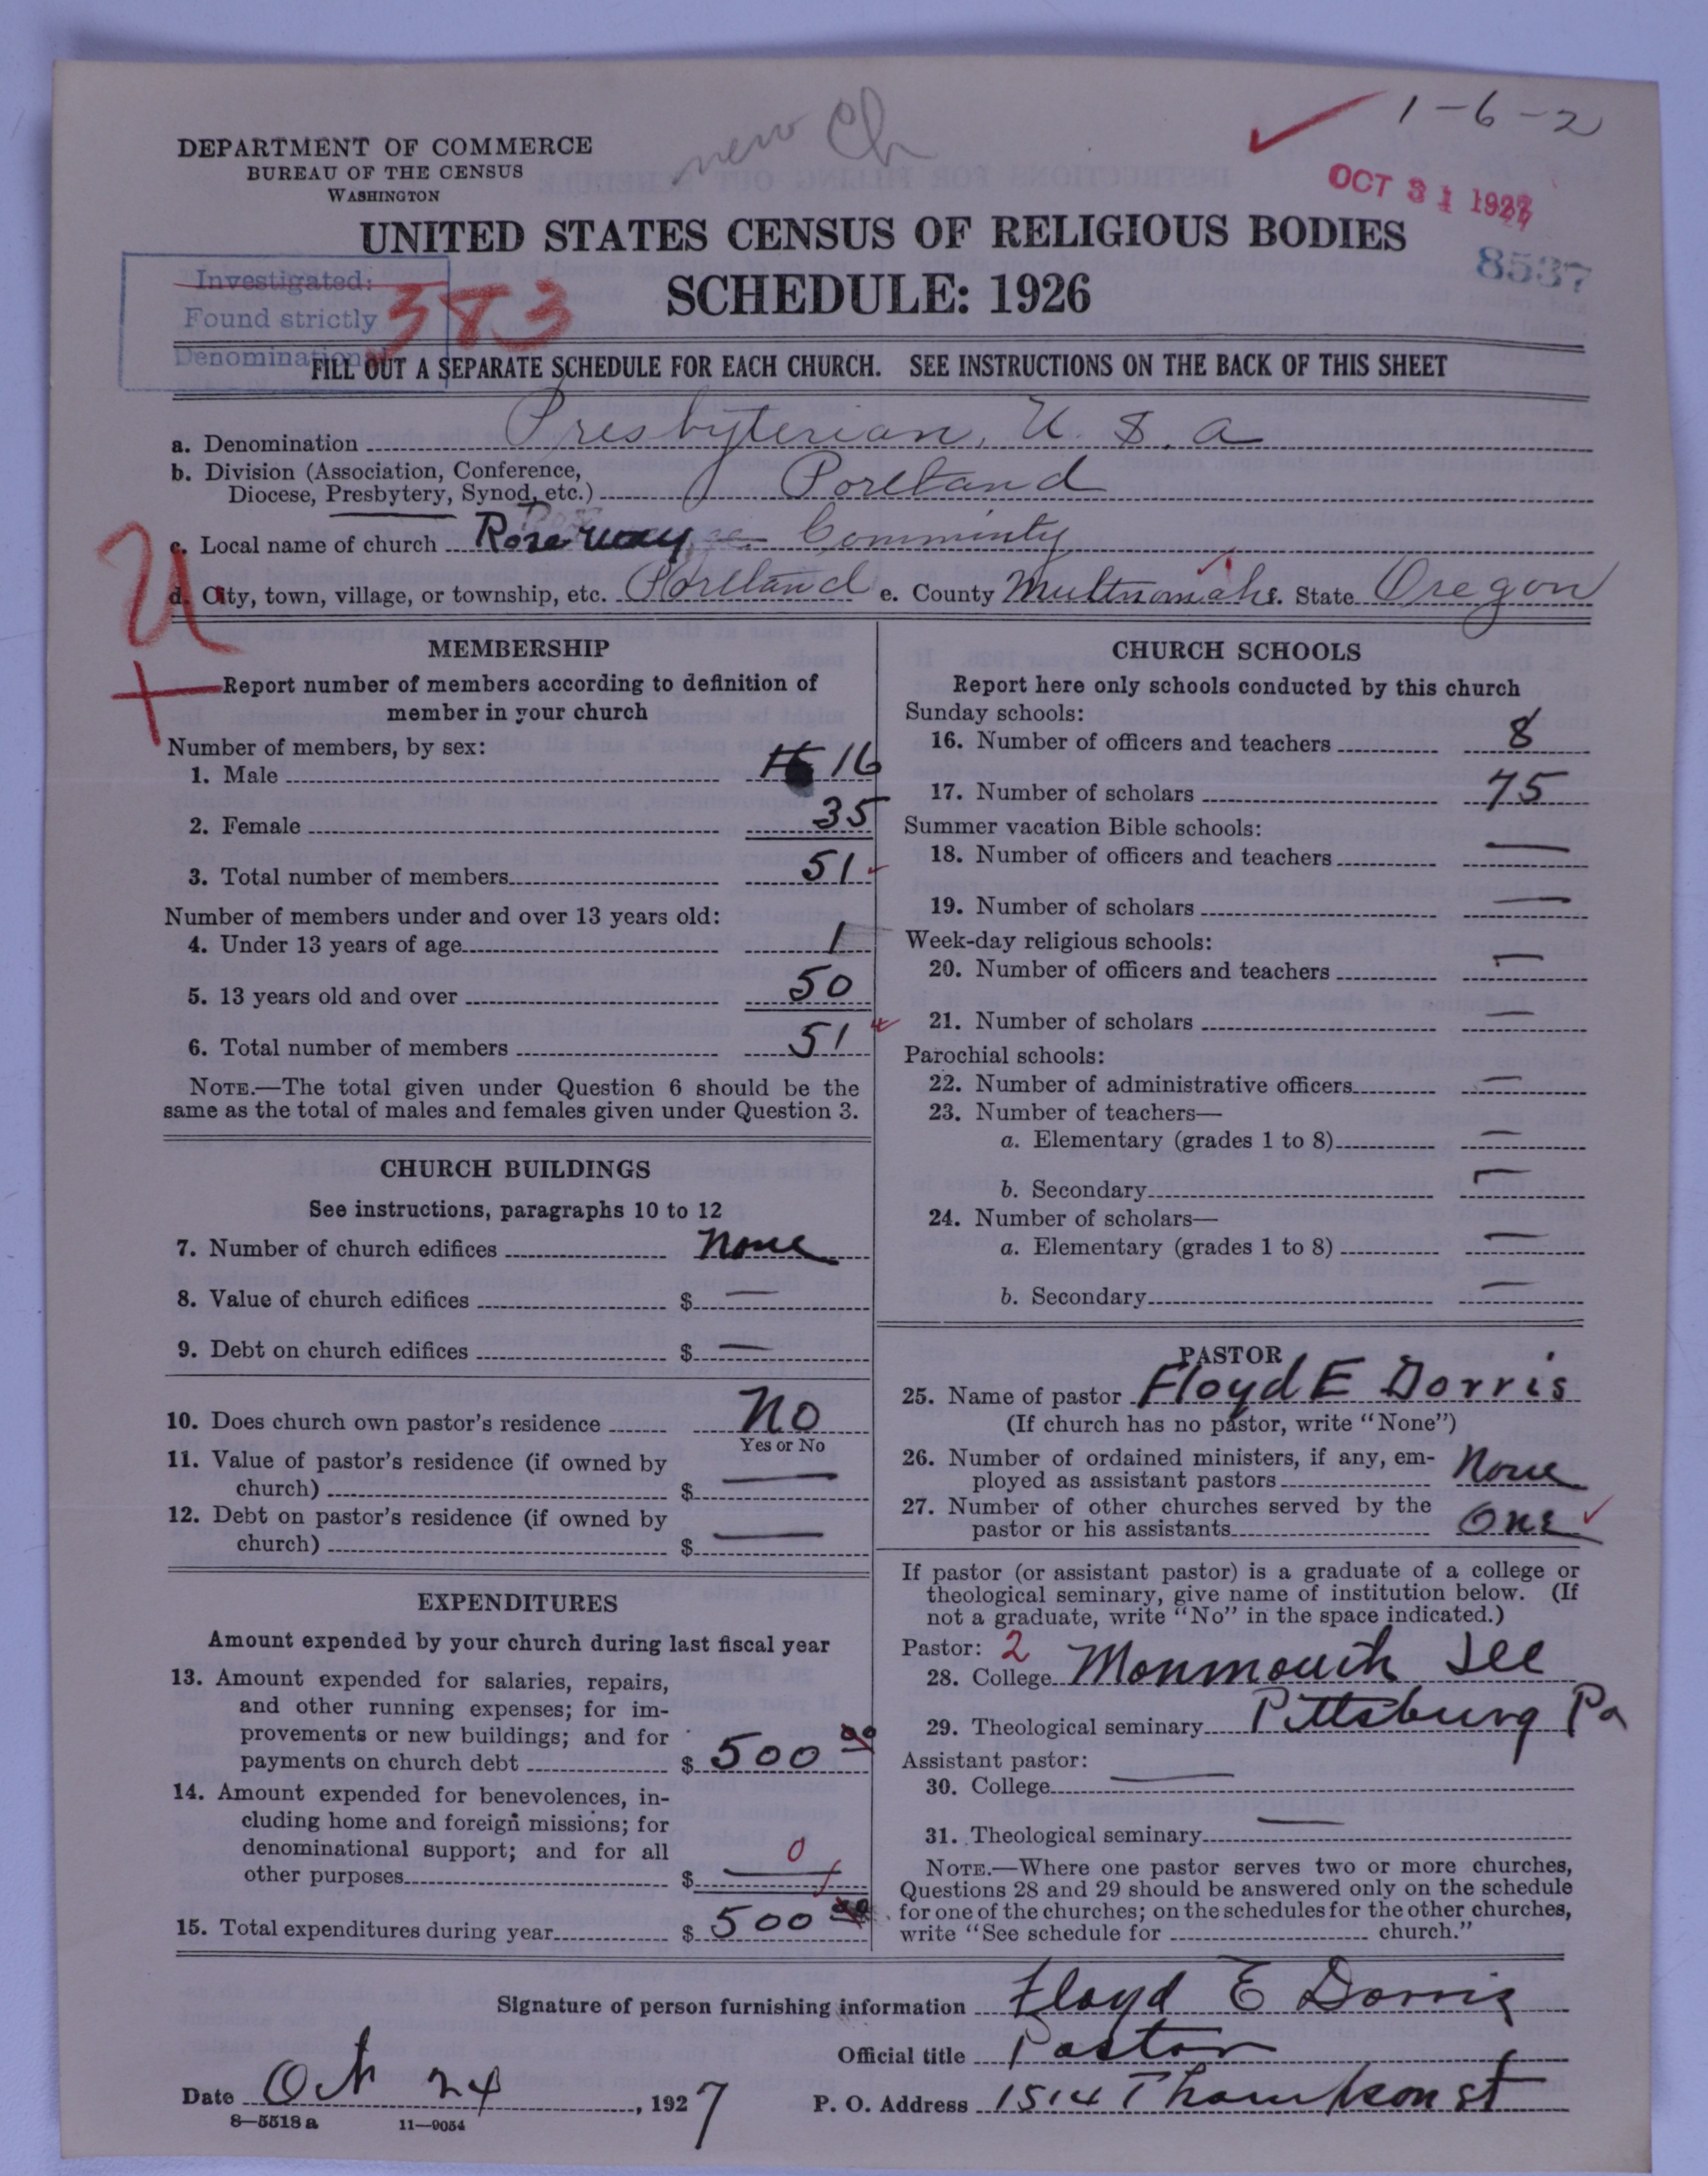 new Ch
1-6-2
DEPARTMENT OF COMMERCE
BUREAU OF THE CENSUS
WASHINGTON
OCT 31 1927
UNITED STATES CENSUS OF RELIGIOUS BODIES
8537
SCHEDULE: 1926
Investigated:
Found strictly
Denominational
383
FILL OUT A SEPARATE SCHEDULE FOR EACH CHURCH. SEE INSTRUCTIONS ON THE BACK OF THIS SHEET
a. Denomination Presbyterian, U. S. a
b. Division (Association, Conference,
Diocese, Presbytery, Synod, etc.) Portland
c. Local name of church Rose way Comminty
U
d. City, town, village, or township, etc. Portland e. County Multnomah f. State Oregon
MEMBERSHIP
Report number of members according to definition of
member in your church
Number of members, by sex:
1. Male 16
2. Female 35
3. Total number of members 51
Number of members under and over 13 years old:
4. Under 13 years of age 1
5. 13 years old and over 50
6. Total number of members 51
NOTE.—The total given under Question 6 should be the
same as the total of males and females given under Question 3.
CHURCH BUILDINGS
See instructions, paragraphs 10 to 12
7. Number of church edifices none
8. Value of church edifices $ —
9. Debt on church edifices $ —
10. Does church own pastor's residence No
Yes or No
11. Value of pastor's residence (if owned by
church) $ —
12. Debt on pastor's residence (if owned by
church) $ —
EXPENDITURES
Amount expended by your church during last fiscal year
13. Amount expended for salaries, repairs,
and other running expenses; for im-
provements or new buildings; and for
payments on church debt $ 500 00
14. Amount expended for benevolences, in-
cluding home and foreign missions; for
denominational support; and for all 0
other purposes $ —
15. Total expenditures during year $ 500 00
CHURCH SCHOOLS
Report here only schools conducted by this church
Sunday schools:
16. Number of officers and teachers 8
17. Number of scholars 75
Summer vacation Bible schools:
18. Number of officers and teachers —
19. Number of scholars —
Week-day religious schools:
20. Number of officers and teachers —
21. Number of scholars —
Parochial schools:
22. Number of administrative officers —
23. Number of teachers—
a. Elementary (grades 1 to 8) —
b. Secondary —
24. Number of scholars—
a. Elementary (grades 1 to 8) —
b. Secondary —
PASTOR
25. Name of pastor Floyd E Dorris
(If church has no pastor, write "None")
26. Number of ordained ministers, if any, em-
ployed as assistant pastors None
27. Number of other churches served by the
pastor or his assistants One
If pastor (or assistant pastor) is a graduate of a college or
theological seminary, give name of institution below. (If
not a graduate, write "No" in the space indicated.)
Pastor: 2
28. College Monmouth Ill
29. Theological seminary Pittsburg Pa
Assistant pastor:
30. College —
31. Theological seminary —
NOTE.—Where one pastor serves two or more churches,
Questions 28 and 29 should be answered only on the schedule
for one of the churches; on the schedules for the other churches,
write "See schedule for church."
Signature of person furnishing information Floyd E Dorris
Official title Pastor
Date Oct 24, 1927 P. O. Address 1514 Thompson st
8—5518 a 11—9054